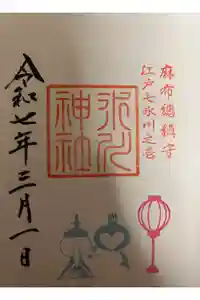 麻布總鎮守
江戸七氷川之宮
氷川神社
令和七年三月一日